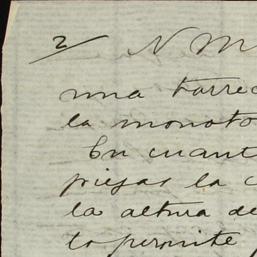 2/ N M
una torre
la monoto
En cuant
piezas la c
la altura de
lo permite